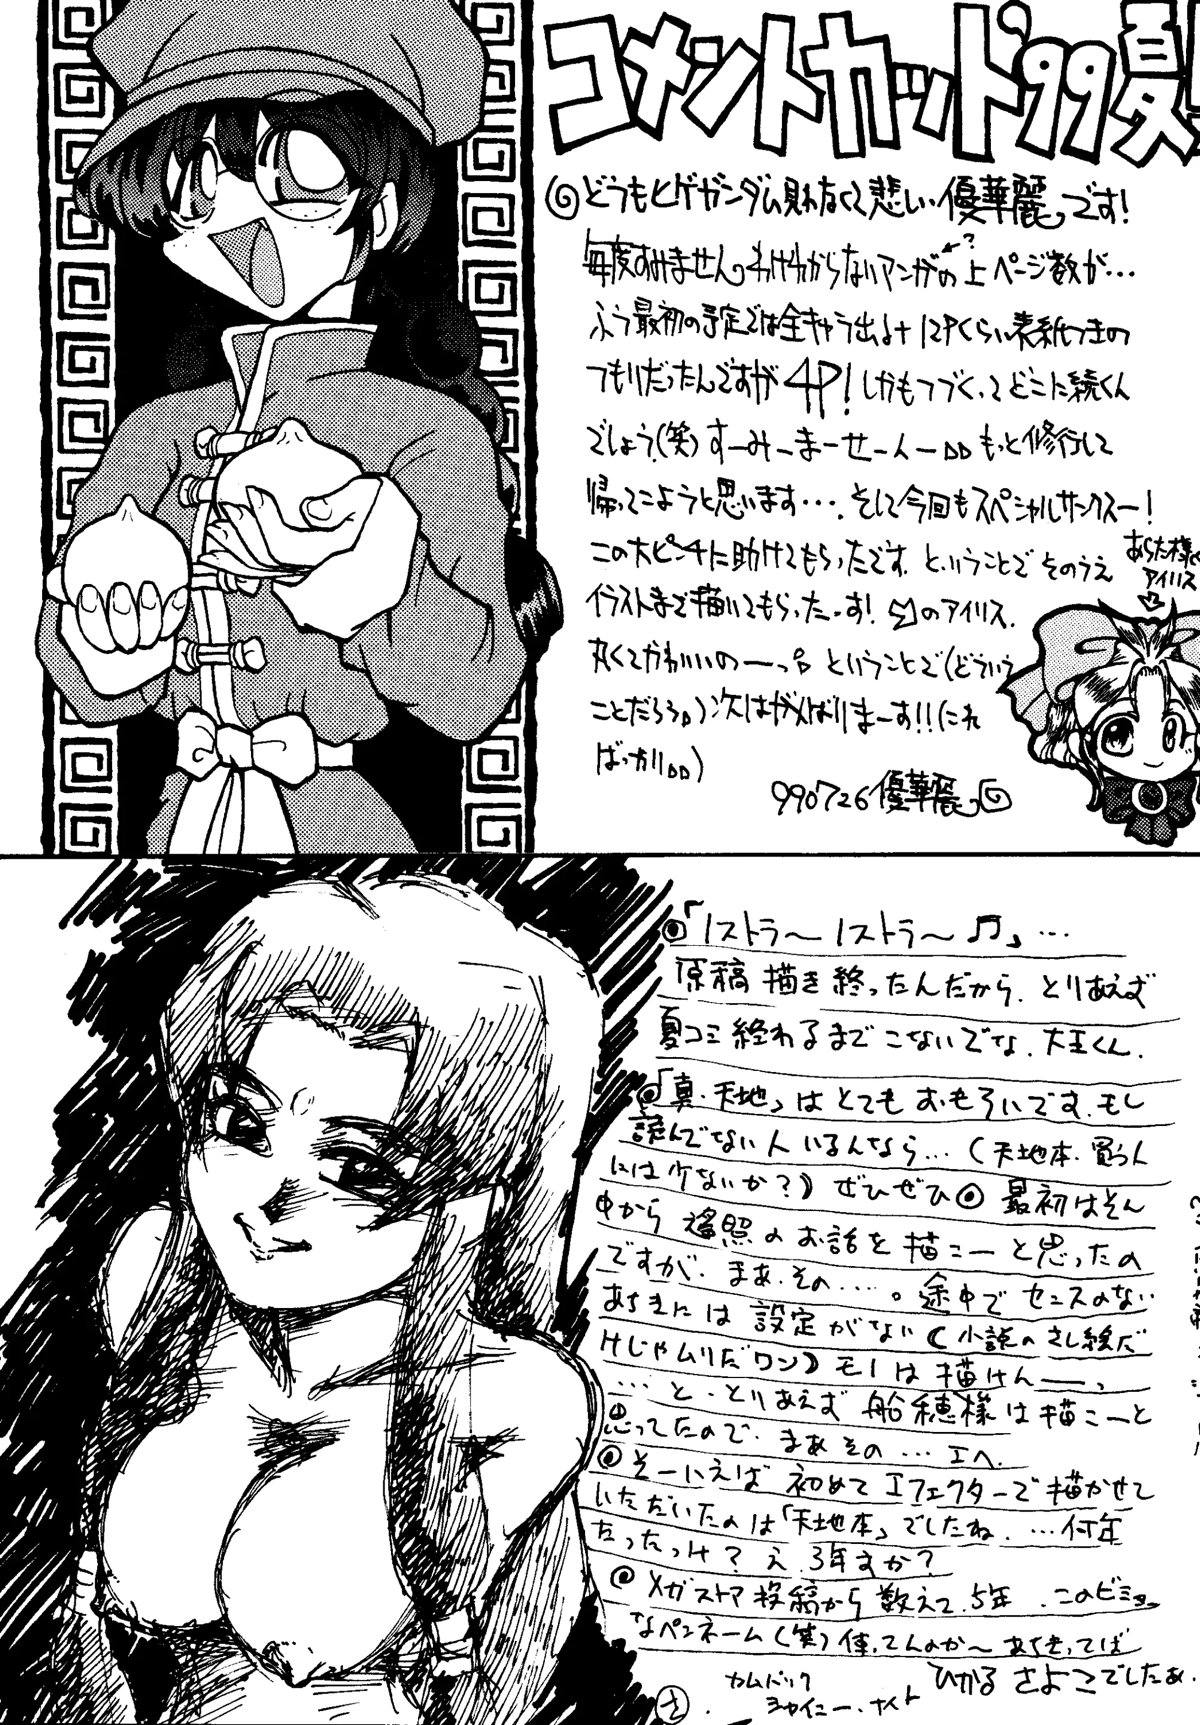 コメントカット'99夏!
どうもヒゲガンダム見れなくて悲しい優華麗です!
毎度すみませんわけわからないマンガの上ページ数が…
?
ふう最初の予定では全キャラ出る+12Pくらい表紙つきの
つもりだったんですが4P!しかもつづくってどこに続くん
でしょう(笑)すーみーまーせーんー もっと修行して
帰ってこようと思います…. そして今回もスペシャルサンクスー!
この大ピンチに助けてもらったです. ということでそのうえ
イラストまで描いてもらったっす! のアイリス.
丸くてかわいいの――っ ということで(どういう
ことだろう)次はがんばりまーす!!(これ
ばっかり)
990726優華麗
あらた様
アイリス
「ノストラ〜ノストラ〜♬」…
原稿描き終ったんだから. とりあえず
夏コミ終わるまでこないでな. 大王くん.
「真・天地」はとてもおもろいです. もし
読んでない人いるんなら…(天地本. 買う人
には少ないか?)ぜひぜひ◎ 最初はそん
中から遙照のお話を描こーと思ったの
ですが. まあ. その….。途中でセンスのない
あちきには設定がない(小説のさし絵だ
けじゃムリだワン)モノは描けんー.
…と. とりあえず船穂様は描こーと
思ってたので. まあその…エヘ.
そーいえば初めてエフェクターで描かせて
いただいたのは「天地本」でしたね. …何年
たったっけ?え3年ですか?
メガストア投稿から数えて. 5年. このビミョー
なペンネーム(笑)使ってんのか〜あちきってば
ひかるさよこでしたぁ.
カムバック
シャイニー・ナイト
さ.